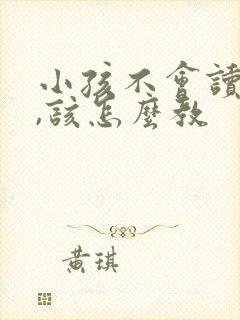 小孩不會讀
,該怎麼教
黃琪